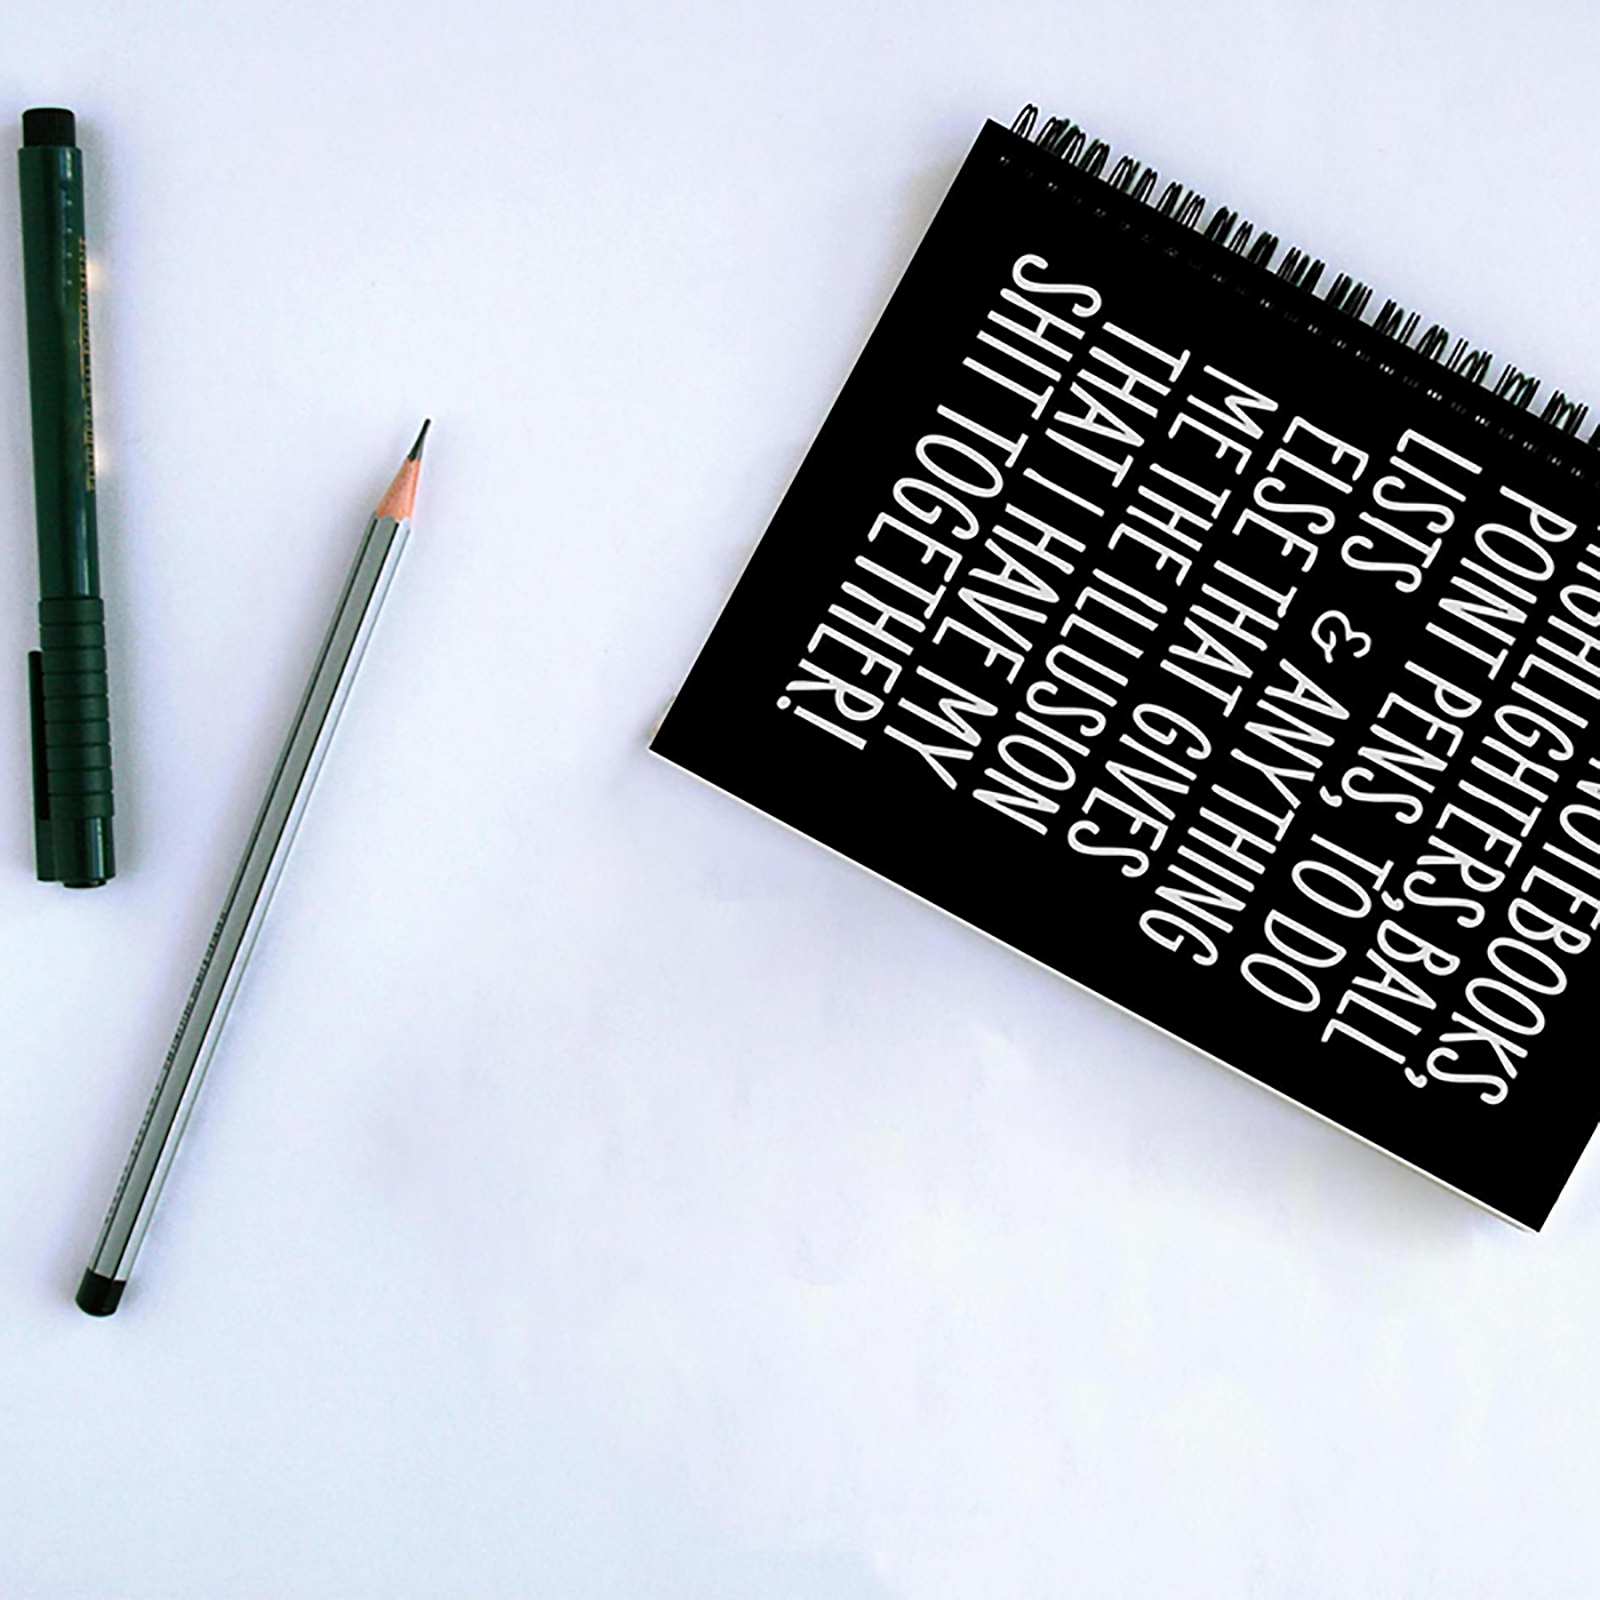 NOTEBOOKS,
HIGHLIGHTERS, BALL
POINT PENS, TO DO
LISTS & ANYTHING
ELSE THAT GIVES
ME THE ILLUSION
THAT I HAVE MY
SHIT TOGETHER!